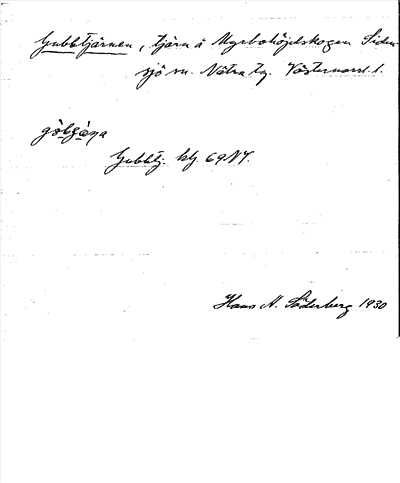 Gubbtjärnen, tjärn å Myrbohöjdskogen Siden-
sjö sn. Nätra tg. Västernorrl. l.
Gubbtj. ktj 69NV.
Hans A. Söderberg 1930